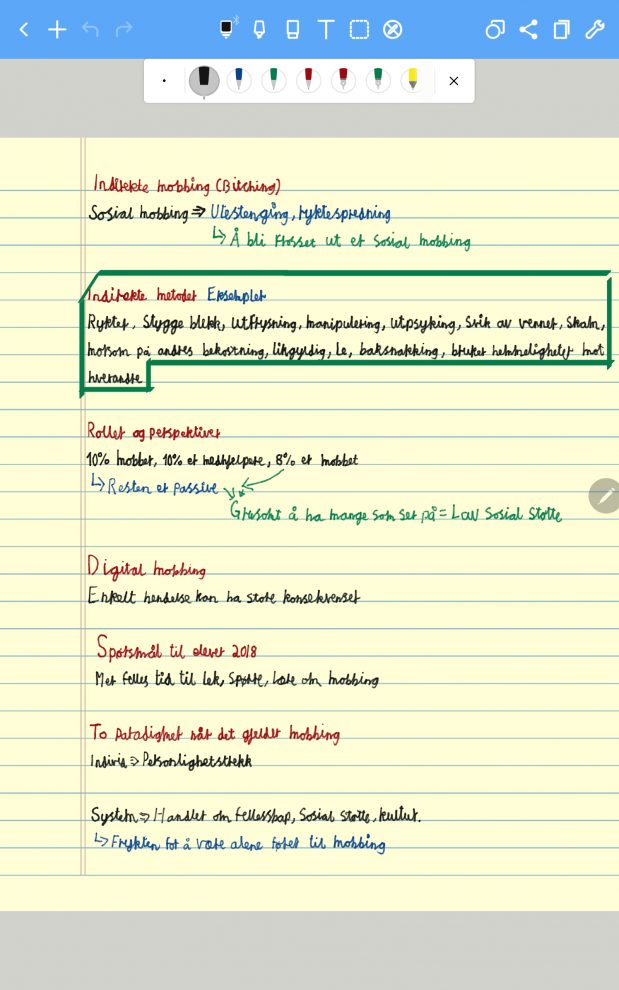 Indirekte mobbing (Bitching)
Sosial mobbing => Utestenging, ryktespredning
↳ Å bli frosset ut er sosial mobbing
Indirekte metoder Eksempler
Rykter, Stygge blikk, utfrysning, manipulering, utpsyking, svik av venner, skam,
morsom på andres bekostning, likgyldig, le, baksnakking, bruker hemmeligheter mot
hverandre
Roller og perspektiver
10% mobber, 10% er medhjelpere, 8% er mobbet
↳ Resten er passive
Grusomt å ha mange som ser på = Lav sosial støtte
Digital mobbing
Enkelt hendelse kan ha store konsekvenser
Spørsmål til elever 2018
Mer felles tid til lek, støtte, lære om mobbing
To paradigmer når det gjelder mobbing
Individ => Personlighetstrekk
System => Handler om fellesskap, sosial støtte, kultur.
↳ Frykten for å være alene fører til mobbing